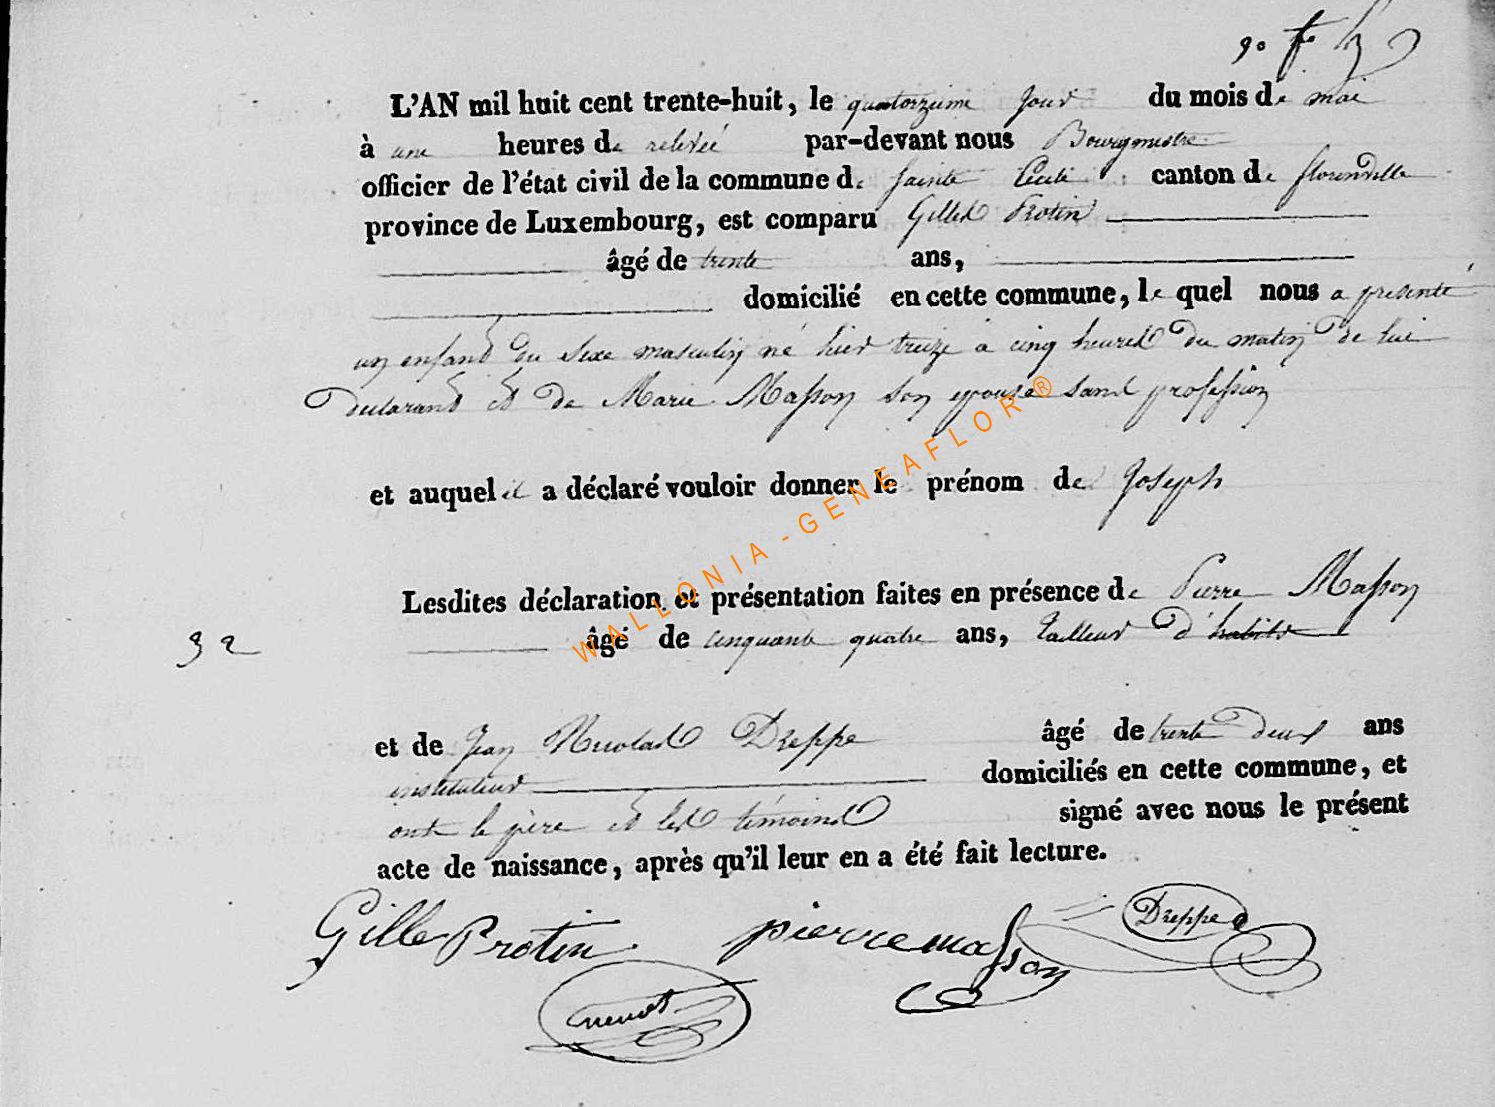 L'AN mil huit cent trente-huit, le quatorzieme jour du mois de mai
à une heures de relevée par-devant nous Bourgmestre
officier de l'état civil de la commune de Sainte Cecile canton de florenville
province de Luxembourg, est comparu Gilles Protin
âgé de trente ans,
domicilié en cette commune, le quel nous a présenté
un enfant du sexe masculin né hier treize à cinq heures du matin de lui
declarant et de Marie Masson son epouse sans profession
et auquel il a déclaré vouloir donner le prénom de Joseph
Lesdites déclaration et présentation faites en présence de Pierre Masson
32
âgé de cinquante quatre ans, tailleur d'habits
et de Jean Nicolas Dreppe âgé de trente deux ans
instituteur domiciliés en cette commune, et
ont le père et les témoins signé avec nous le présent
acte de naissance, après qu'il leur en a été fait lecture.
Gille Protin pierre masson Dreppe
WALLONIA-GENEAFLOR®